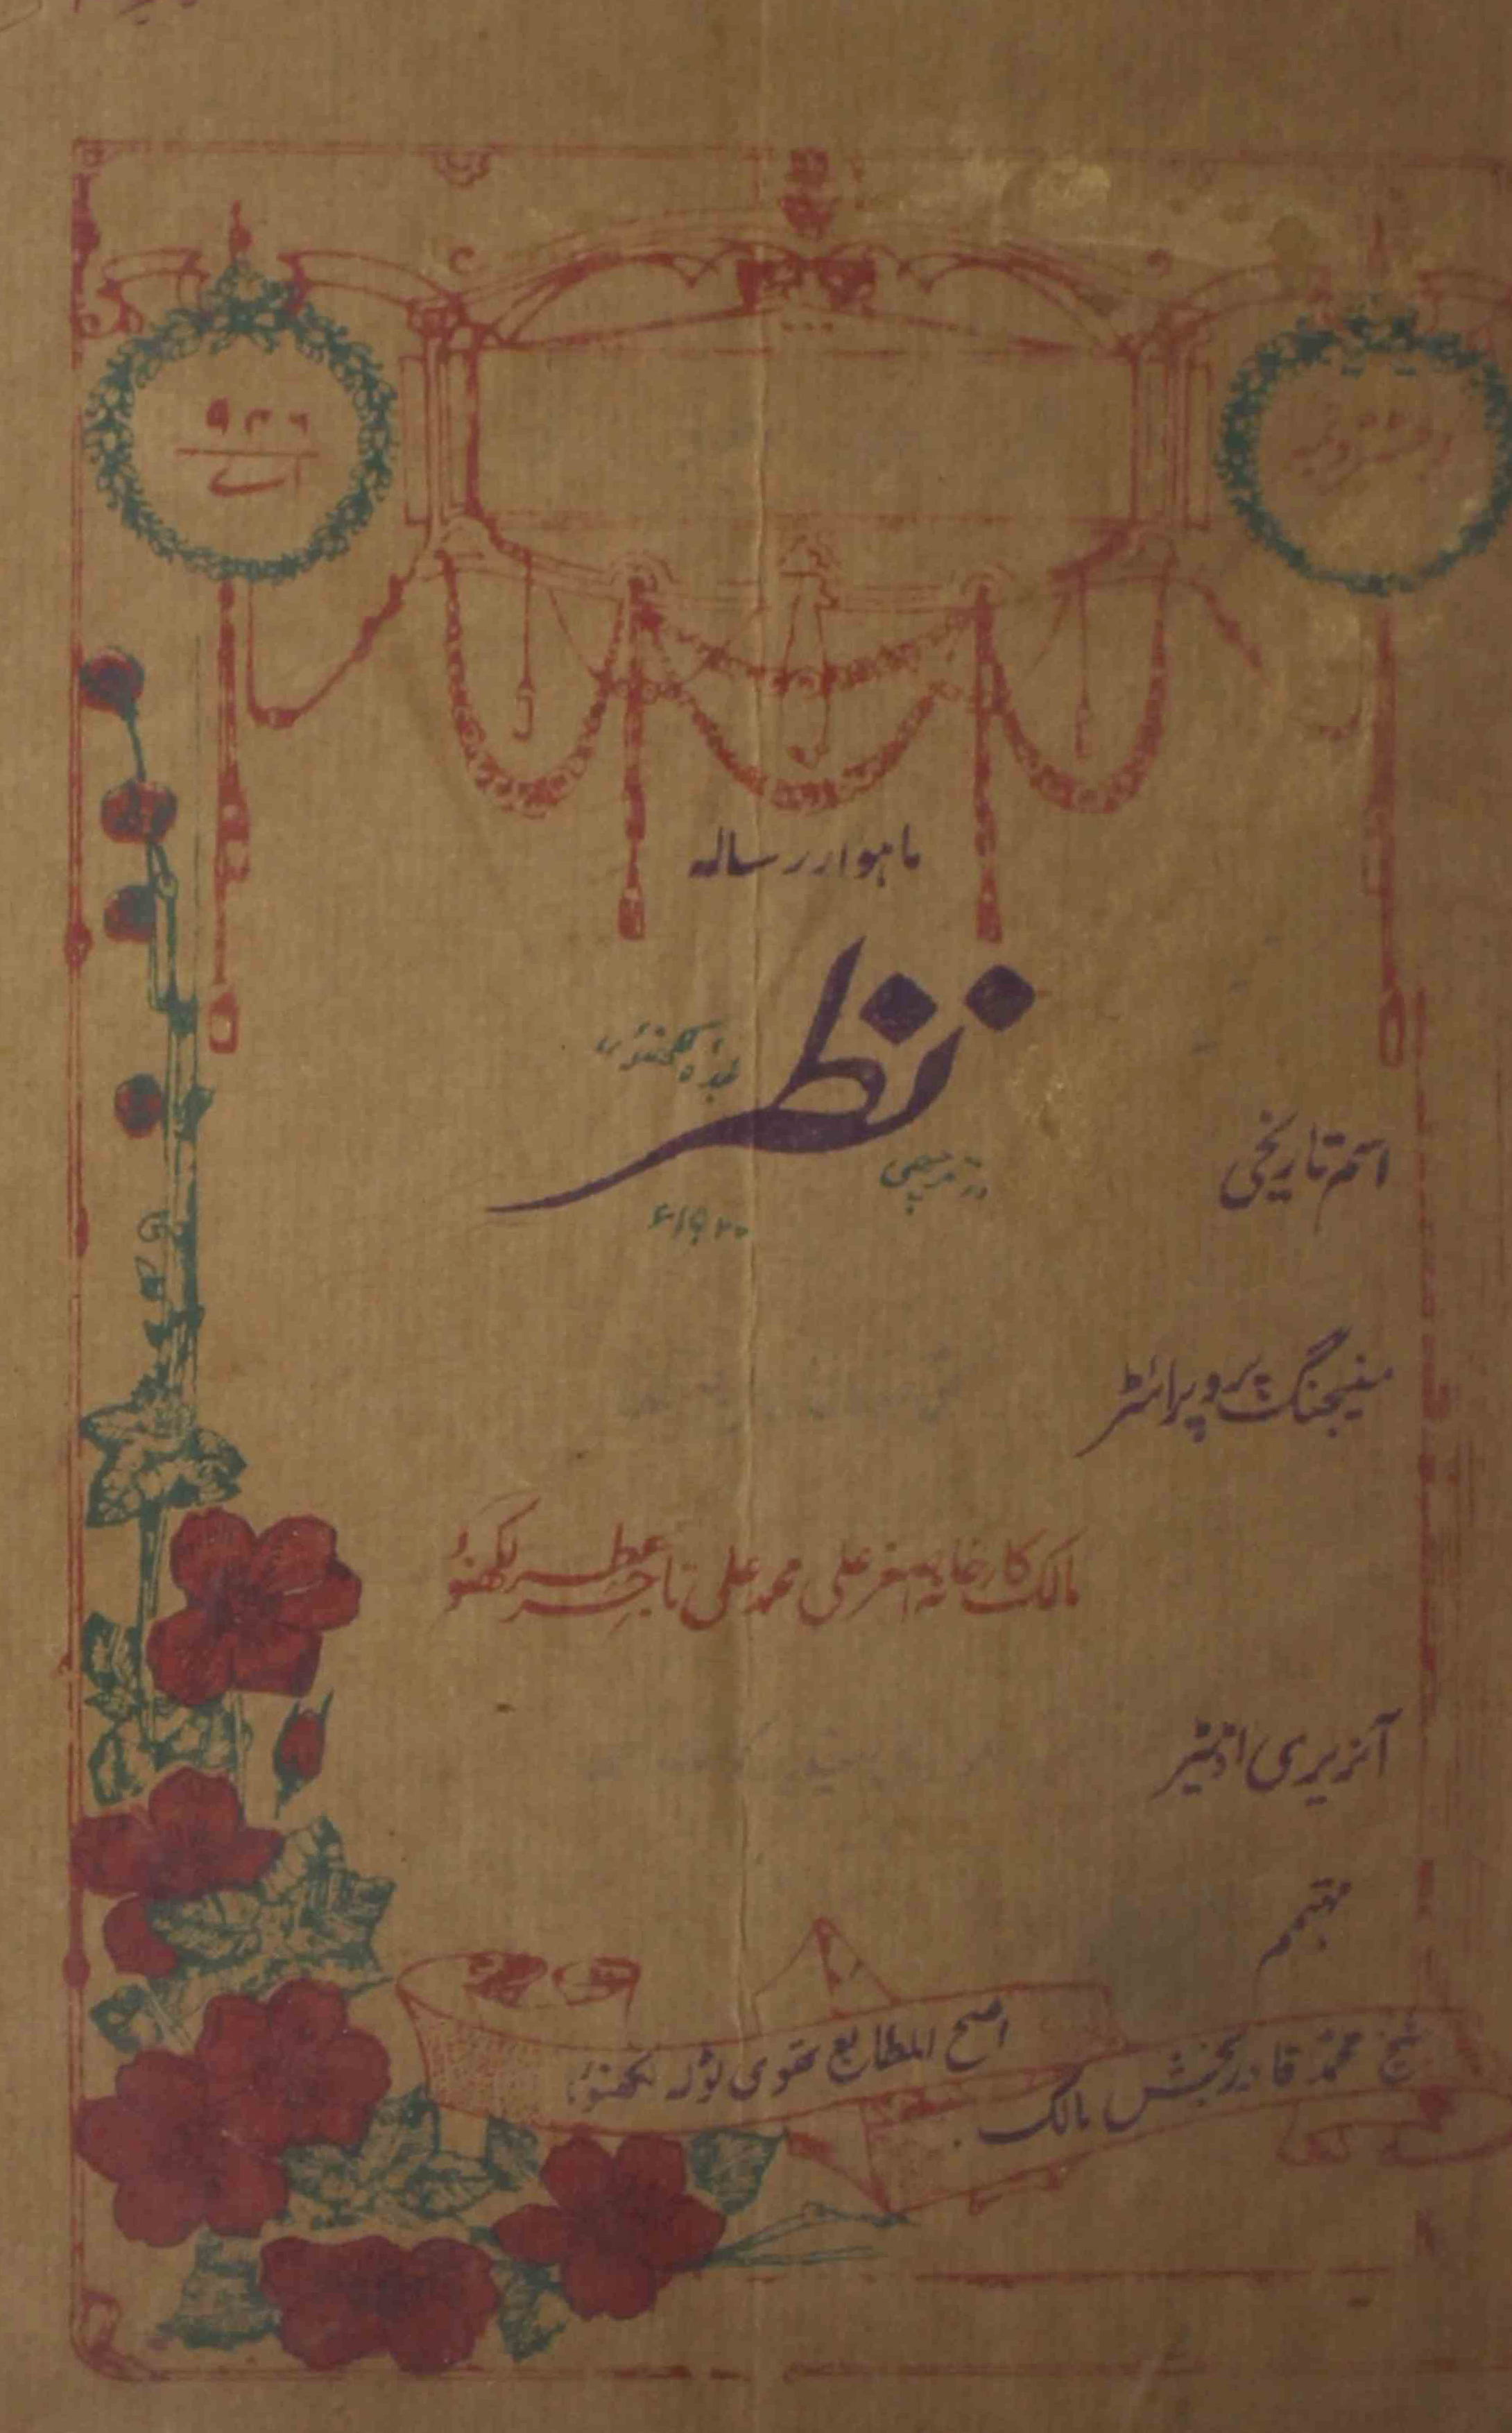 رجسٹرڈ نمبر
۹۳۶
اے
ماہوار رسالہ
نظر
۱۹۲۰ء
اسم تاریخی
منیجنگ پروپرائٹر
مالک کارخانہ اصغر علی محمد علی تاجر عطر لکھنؤ
آنریری اڈیٹر
مہتمم
شیخ محمد قادر بخش مالک
اصح المطابع تھوی ٹولہ لکھنؤ